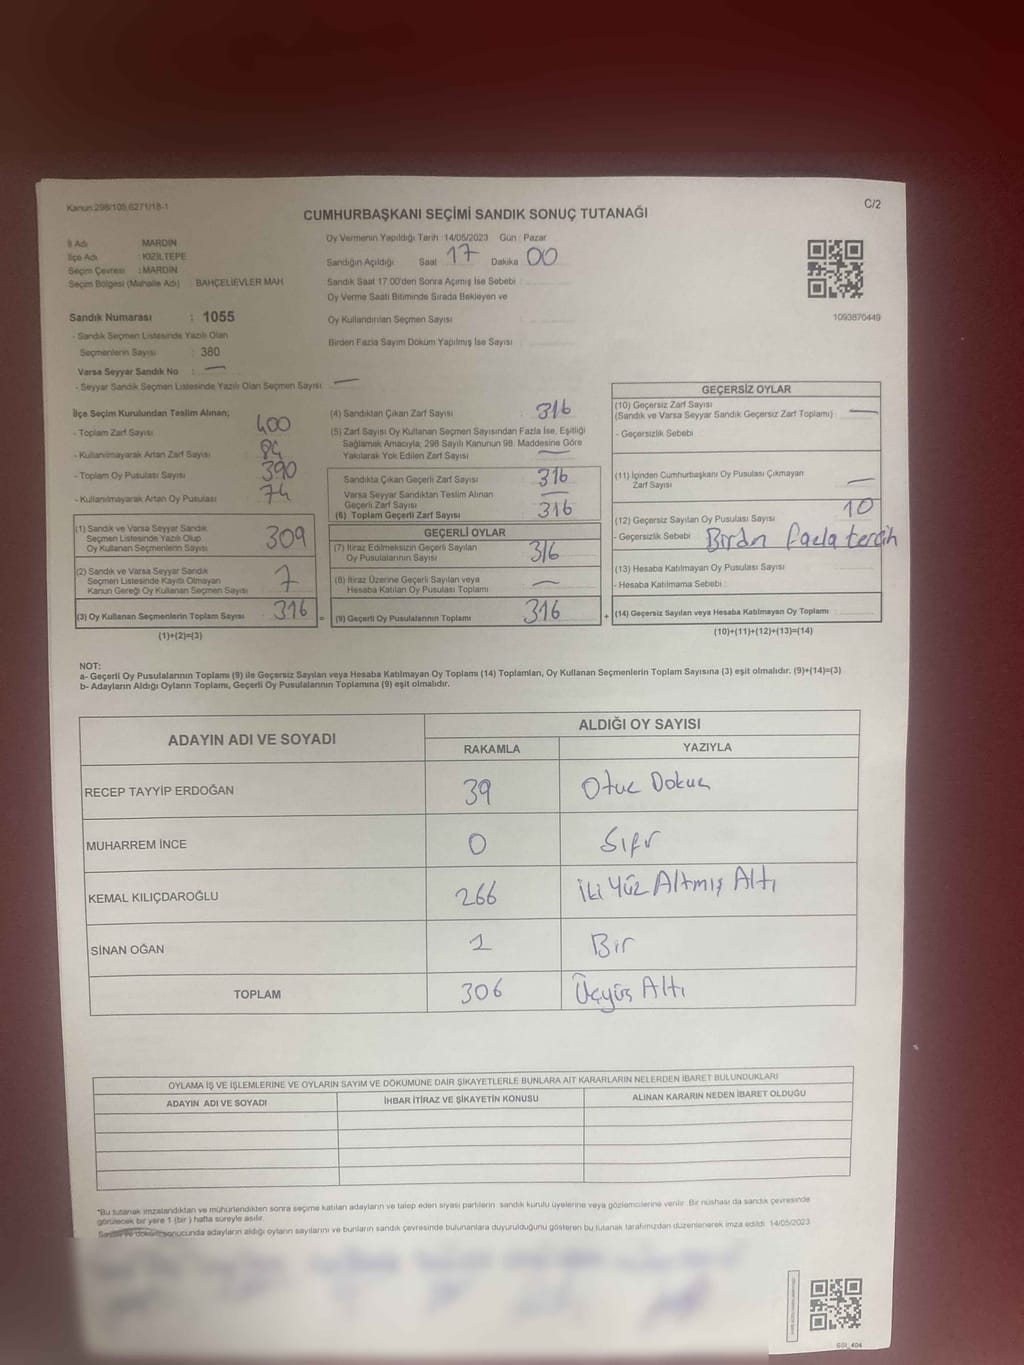 Kanun 298/105,6271/18-1
C/2
CUMHURBAŞKANI SEÇİMİ SANDIK SONUÇ TUTANAĞI
İl Adı : MARDİN
İlçe Adı : KIZILTEPE
Seçim Çevresi : MARDİN
Seçim Bölgesi (Mahalle Adı) : BAHÇELİEVLER MAH
Sandık Numarası : 1055
- Sandık Seçmen Listesinde Yazılı Olan
Seçmenlerin Sayısı : 380
Varsa Seyyar Sandık No : —
- Seyyar Sandık Seçmen Listesinde Yazılı Olan Seçmen Sayısı : —
Oy Vermenin Yapıldığı Tarih : 14/05/2023 Gün : Pazar
Sandığın Açıldığı Saat 17 Dakika 00
Sandık Saat 17:00'den Sonra Açımış İse Sebebi :
Oy Verme Saati Bitiminde Sırada Bekleyen ve
Oy Kullandırılan Seçmen Sayısı :
Birden Fazla Sayım Döküm Yapılmış İse Sayısı :
1093870449
İlçe Seçim Kurulundan Teslim Alınan;
- Toplam Zarf Sayısı : 400
- Kullanılmayarak Artan Zarf Sayısı : 84
- Toplam Oy Pusulası Sayısı : 390
- Kullanılmayarak Artan Oy Pusulası : 74
(1) Sandık ve Varsa Seyyar Sandık
Seçmen Listesinde Yazılı Olup
Oy Kullanan Seçmenlerin Sayısı : 309
(2) Sandık ve Varsa Seyyar Sandık
Seçmen Listesinde Kayıtlı Olmayan
Kanun Gereği Oy Kullanan Seçmen Sayısı : 7
(3) Oy Kullanan Seçmenlerin Toplam Sayısı : 316
(1)+(2)=(3)
(4) Sandıktan Çıkan Zarf Sayısı : 316
(5) Zarf Sayısı Oy Kullanan Seçmen Sayısından Fazla İse, Eşitliği
Sağlamak Amacıyla, 298 Sayılı Kanunun 98. Maddesine Göre
Yakılarak Yok Edilen Zarf Sayısı : —
Sandıkta Çıkan Geçerli Zarf Sayısı : 316
Varsa Seyyar Sandıktan Teslim Alınan
Geçerli Zarf Sayısı : —
(6) Toplam Geçerli Zarf Sayısı : 316
GEÇERLİ OYLAR
(7) İtiraz Edilmeksizin Geçerli Sayılan
Oy Pusulalarının Sayısı : 316
(8) İtiraz Üzerine Geçerli Sayılan veya
Hesaba Katılan Oy Pusulası Toplamı : —
= (9) Geçerli Oy Pusulalarının Toplamı : 316
GEÇERSİZ OYLAR
(10) Geçersiz Zarf Sayısı
(Sandık ve Varsa Seyyar Sandık Geçersiz Zarf Toplamı) : —
- Geçersizlik Sebebi :
(11) İçinden Cumhurbaşkanı Oy Pusulası Çıkmayan
Zarf Sayısı : —
(12) Geçersiz Sayılan Oy Pusulası Sayısı : 10
- Geçersizlik Sebebi : Birdn facla tercih
(13) Hesaba Katılmayan Oy Pusulası Sayısı :
- Hesaba Katılmama Sebebi :
+ (14) Geçersiz Sayılan veya Hesaba Katılmayan Oy Toplamı :
(10)+(11)+(12)+(13)=(14)
NOT:
a- Geçerli Oy Pusulalarının Toplamı (9) ile Geçersiz Sayılan veya Hesaba Katılmayan Oy Toplamı (14) Toplamları, Oy Kullanan Seçmenlerin Toplam Sayısına (3) eşit olmalıdır. (9)+(14)=(3)
b- Adayların Aldığı Oyların Toplamı, Geçerli Oy Pusulalarının Toplamına (9) eşit olmalıdır.
ADAYIN ADI VE SOYADI
ALDIĞI OY SAYISI
RAKAMLA YAZIYLA
RECEP TAYYİP ERDOĞAN 39 Otuz Dokuz
MUHARREM İNCE 0 Sıfır
KEMAL KILIÇDAROĞLU 266 İki Yüz Altmış Altı
SİNAN OĞAN 1 Bir
TOPLAM 306 Üçyüs Altı
OYLAMA İŞ VE İŞLEMLERİNE VE OYLARIN SAYIM VE DÖKÜMÜNE DAİR ŞİKAYETLERLE BUNLARA AİT KARARLARIN NELERDEN İBARET BULUNDUKLARI
ADAYIN ADI VE SOYADI İHBAR İTİRAZ VE ŞİKAYETİN KONUSU ALINAN KARARIN NEDEN İBARET OLDUĞU
*Bu tutanak imzalandıktan ve mühürlendikten sonra seçime katılan adayların ve talep eden siyasi partilerin sandık kurulu üyelerine veya gözlemcilerine verilir. Bir nüshası da sandık çevresinde
görülecek bir yere 1 (bir ) hafta süreyle asılır.
Sayım ve döküm sonucunda adayların aldığı oyların sayılarını ve bunların sandık çevresinde bulunanlara duyurulduğunu gösteren bu tutanak tarafımızdan düzenlenerek imza edildi. 14/05/2023
GSI_404